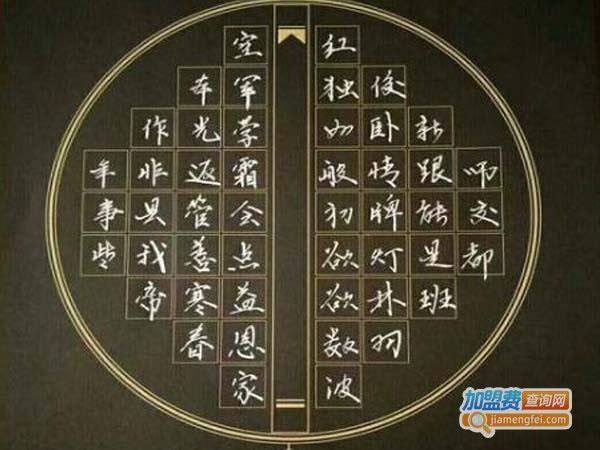 室 红
军 独 俊
作 光 学 如 卧 新
年 非 返 霜 般 情 跟 师
事 具 管 会 初 牌 能 交
些 我 善 点 欲 灯 是 都
帝 寒 益 欲 林 班
春 恩 数 羽
家 波
加盟费查询网
jiamengfei.com